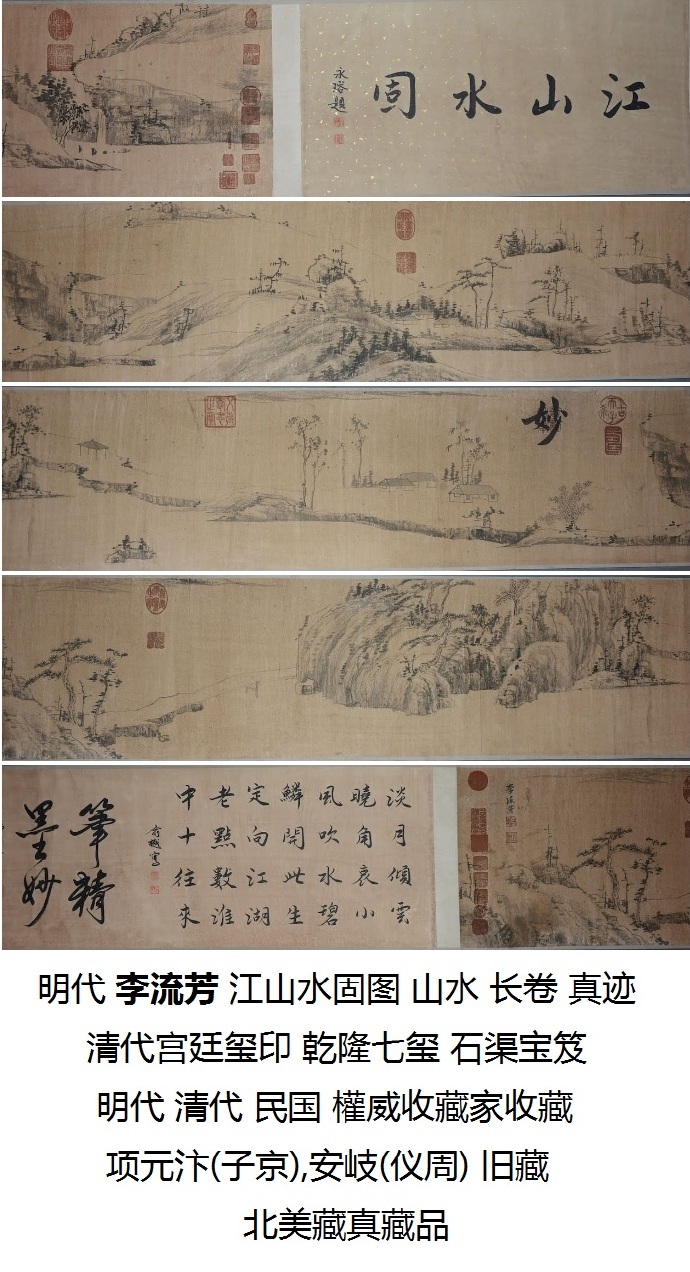 江山水固
永瑢題
妙
李流芳
淡月傾雲
曉角哀小
風吹水碧
鱗開此生
定向江湖
老默數淮
中十往來
俞樾寫
筆精
墨妙
明代 李流芳 江山水固图 山水 长卷 真迹
清代宫廷玺印 乾隆七玺 石渠宝笈
明代 清代 民国 權威收藏家收藏
项元汴(子京),安岐(仪周) 旧藏
北美藏真藏品